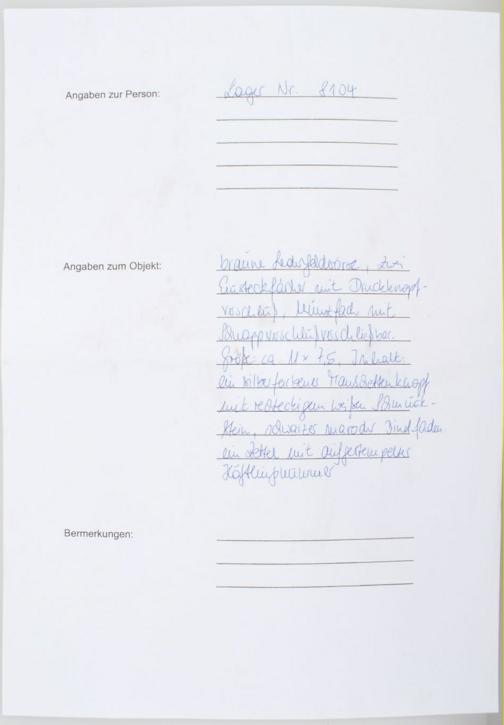 Angaben zur Person:
Lager Nr. 8104
Angaben zum Objekt:
braune Ledergeldbörse, zwei
Einsteckfächer mit Druckknopf-
verschluß, Münzfach mit
Schnappverschluß verschließbar.
Größe ca. 11 x 7,5, Inhalt:
ein silberfarbener Manschettenknopf
mit rechteckigem weißen Schmuck-
stein, schwarzer Bindfaden
ein Zettel mit aufgestempelter
Häftlingsnummer
Bermerkungen: